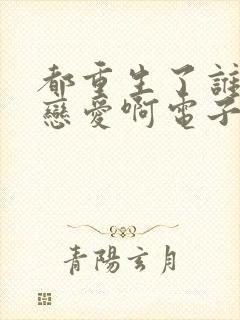 都重生了誰
戀愛啊電子
青陽玄月